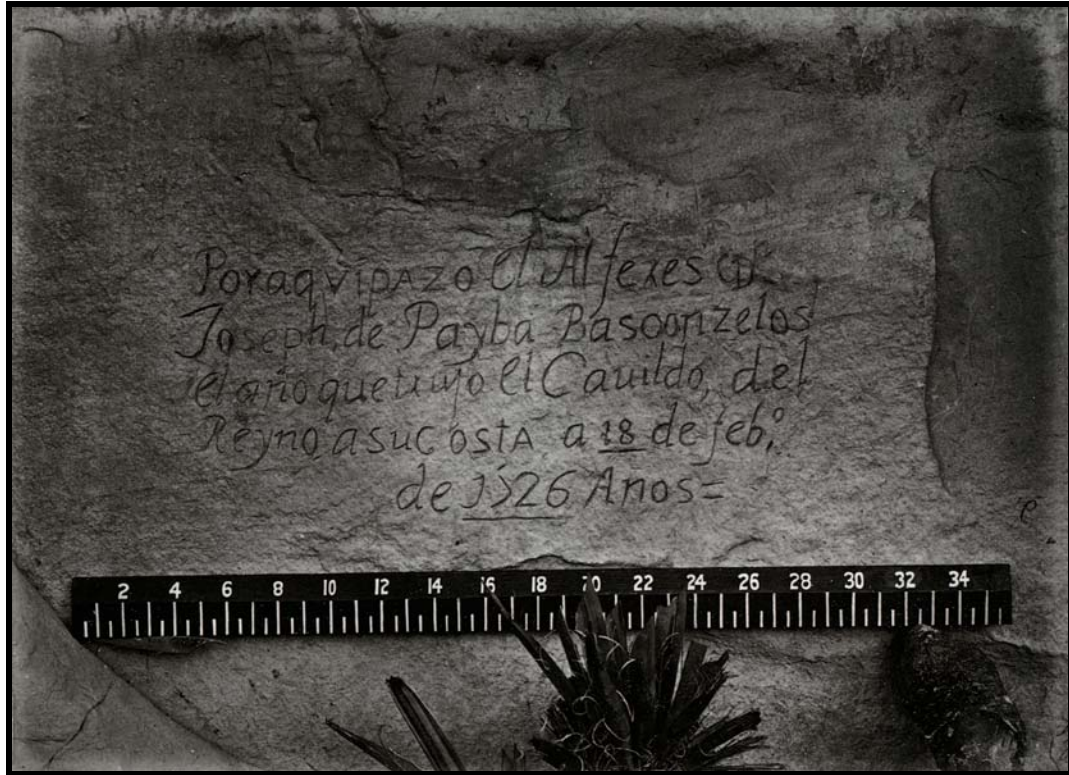 Por aqvi pAzo el Alferes Dn.
Joseph de Payba Basconzelos
el año que trujo el Cauildo, del
Reyno a su costA a 18 de feb.º
de 1726 Años=
e
2 4 6 8 10 12 14 16 18 20 22 24 26 28 30 32 34